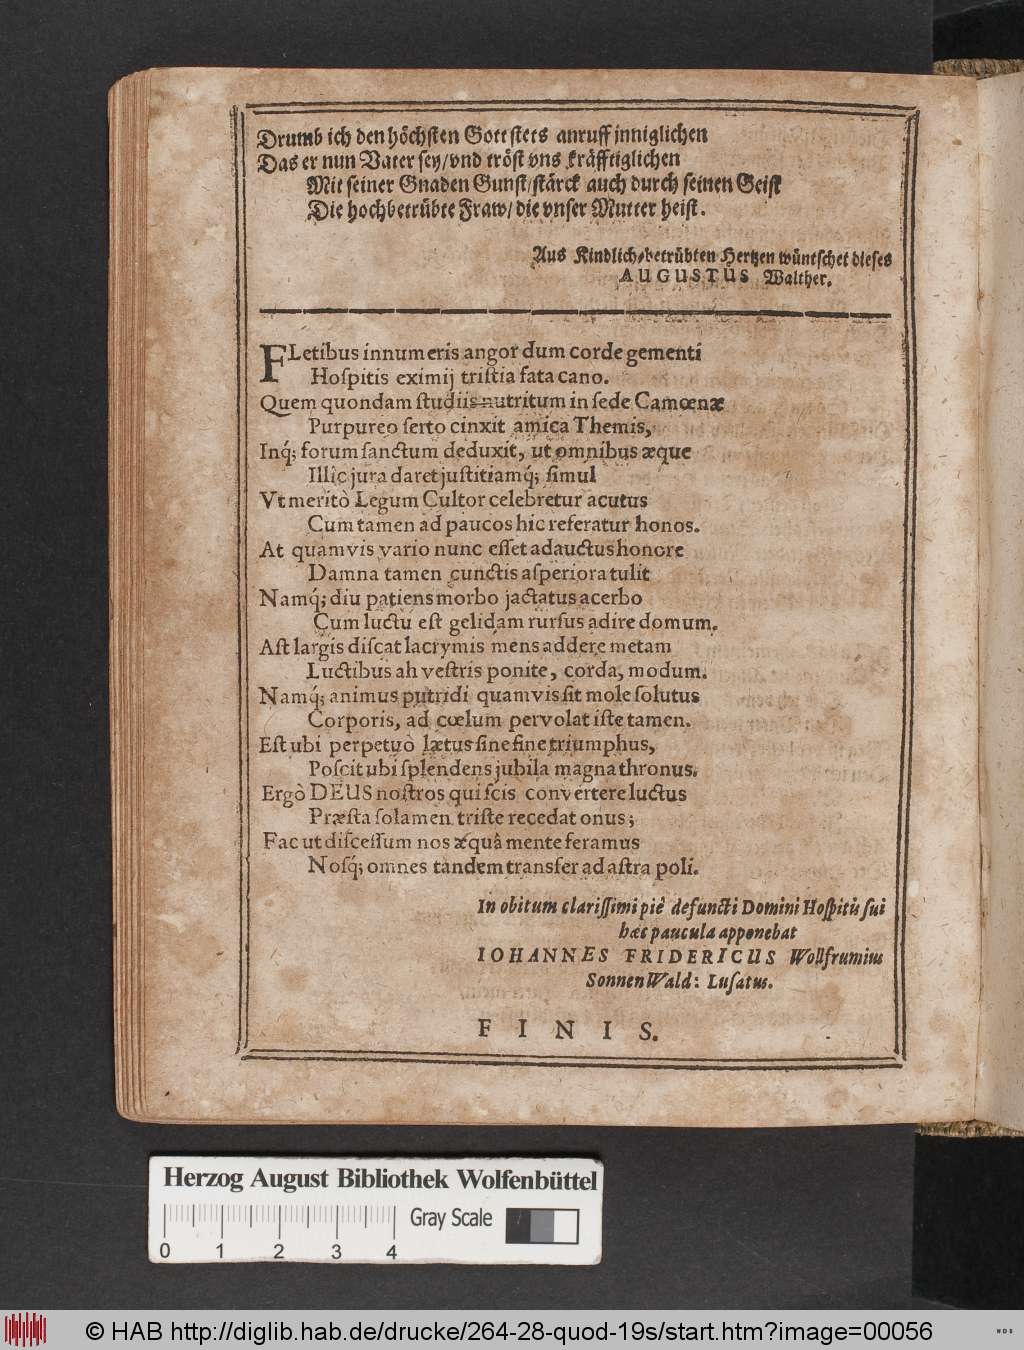 Drumb ich den höchsten Gott stets anruff jnniglichen
Das er nun Vater sey/vnd tröst vns kräfftiglichen
Mit seiner Gnaden Gunst/stärck auch durch seinen Geist
Die hochbetrübte Fraw/die vnser Mutter heist.
Aus Kindlich-betrübten Hertzen wüntschet dieses
AUGUSTUS Walther.
FLetibus innumeris angor dum corde gementi
Hoſpitis eximij triſtia fata cano.
Quem quondam ſtudiis nutritum in ſede Camœnæ
Purpureo ſerto cinxit amica Themis,
Inq́; forum ſanctum deduxit, ut omnibus æque
Illîc jura daret juſtitiamq́; ſimul
Vt meritò Legum Cultor celebretur acutus
Cum tamen ad paucos hic referatur honos.
At quamvis vario nunc eſſet adauctus honore
Damna tamen cunctis aſperiora tulit
Namq́; diu patiens morbo jactatus acerbo
Cum luctu eſt gelidam rurſus adire domum.
Aſt largis diſcat lacrymis mens addere metam
Luctibus ah veſtris ponite, corda, modum.
Namq́; animus putridi quamvis ſit mole ſolutus
Corporis, ad cœlum pervolat iſte tamen.
Eſt ubi perpetuò lætus ſine fine triumphus,
Poſcit ubi ſplendens jubila magna thronus.
Ergò DEUS noſtros qui ſcis convertere luctus
Præſta ſolamen triſte recedat onus;
Fac ut diſceſſum nos æquâ mente feramus
Noſq́; omnes tandem transfer ad aſtra poli.
In obitum clariſſimi piè defuncti Domini Hoſpitis ſui
hæc paucula apponebat
IOHANNES FRIDERICUS Wollfrumius
SonnenWald: Luſatus.
FINIS.
Herzog August Bibliothek Wolfenbüttel
Gray Scale
0 1 2 3 4
© HAB http://diglib.hab.de/drucke/264-28-quod-19s/start.htm?image=00056